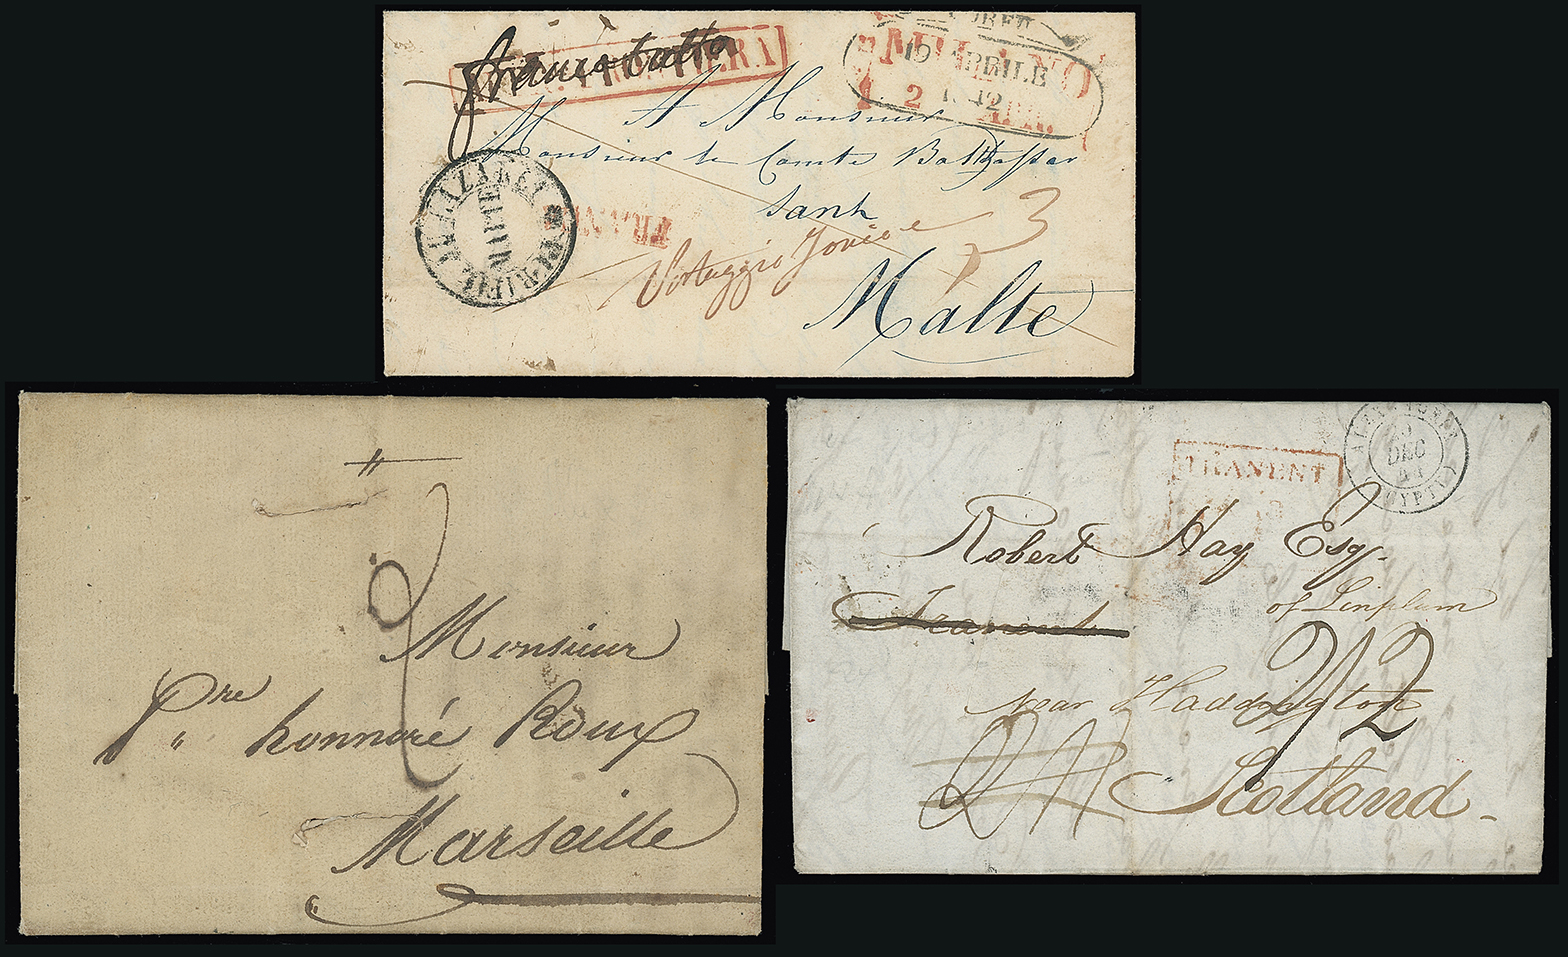 franco tutto
FRONTIERA
MILANO
19 APRILE
2
APR.
A Monsieur
Monsieur le Comte Balthassar
Sant
FRANCA
Postaggio Jonico 3
Malte
2
Monsieur
Pre honnoré Roux
Marseille
DEC
TRANENT
Robert Hay Esq.
Tranent
of Linplum
near Haddington
2/2
Scotland